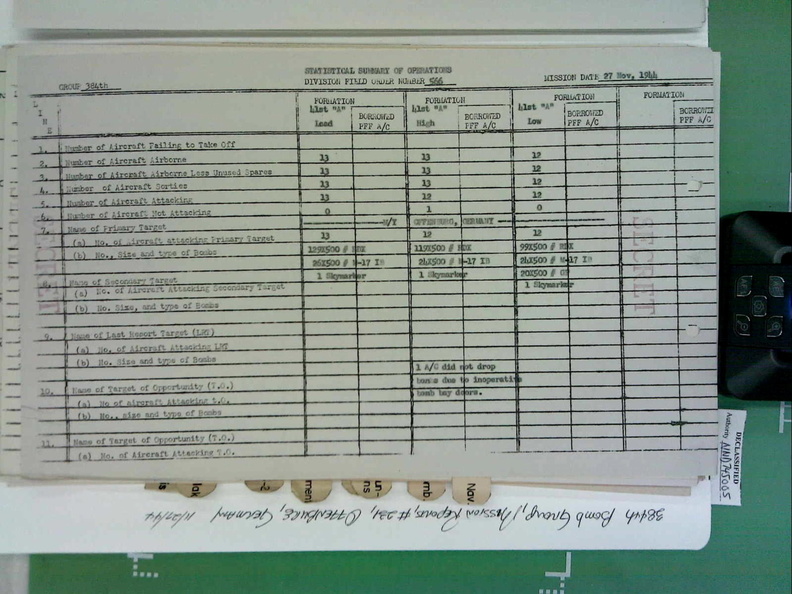 STATISTICAL SUMMARY OF OPERATIONS
GROUP 384th DIVISION FIELD ORDER NUMBER 566 MISSION DATE 27 Nov, 1944
LINE FORMATION FORMATION FORMATION FORMATION
41st "A" BORROWED 41st "A" BORROWED 41st "A" BORROWED BORROWED
Lead PFF A/C High PFF A/C Low PFF A/C PFF A/C
1. Number of Aircraft Failing to Take Off
2. Number of Aircraft Airborne 13 13 12
3. Number of Aircraft Airborne Less Unused Spares 13 13 12
4. Number of Aircraft Sorties 13 13 12
5. Number of Aircraft Attacking 13 12 12
6. Number of Aircraft Not Attacking 0 1 0
7. Name of Primary Target M/Y OFFENBURG, GERMANY
(a) No. of Aircraft attacking Primary Target 13 12 12
(b) No., Size and type of Bombs 129X500 # RDX 119X500 # RDX 99X500 # RDX
26X500 # M-17 IB 24X500 # M-17 IB 24X500 # M-17 IB
8. Name of Secondary Target 1 Skymarker 1 Skymarker 20X500 # GP
(a) No. of Aircraft Attacking Secondary Target 1 Skymarker
(b) No. Size, and type of Bombs
9. Name of Last Resort Target (LRT)
(a) No. of Aircraft Attacking LRT
(b) No. Size and type of Bombs 1 A/C did not drop
10. Name of Target of Opportunity (T.O.) bombs due to inoperative
(a) No of Aircraft Attacking T.O. bomb bay doors.
(b) No., size and type of Bombs
11. Name of Target of Opportunity (T.O.)
(a) No. of Aircraft Attacking T.O.
SECRET
SECRET
DECLASSIFIED
Authority NND745005
384th Bomb Group, Mission Reports, #231, OFFENBURG, GERMANY 11/27/44
Nav